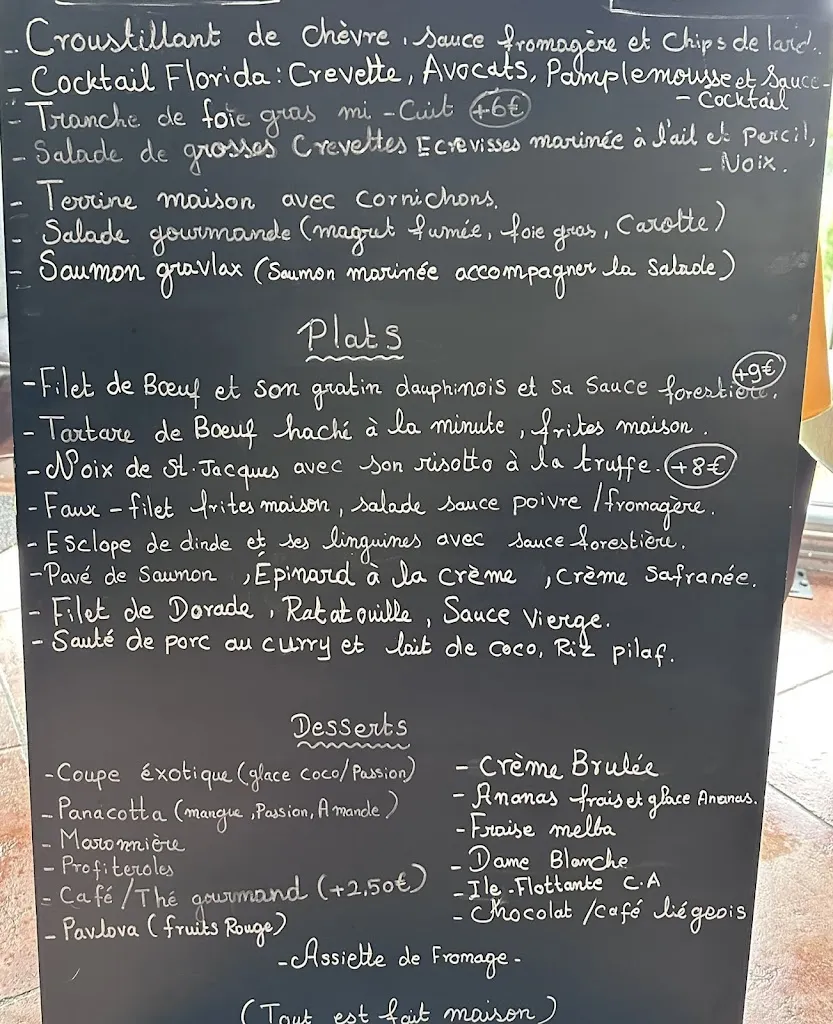 - Croustillant de chèvre, sauce fromagère et Chips de lard.
- Cocktail Florida : Crevette, Avocats, Pamplemousse et Sauce -
- Cocktail
- Tranche de foie gras mi-Cuit (+6€)
- Salade de grosses Crevettes Ecrevisses marinée à l'ail et Percil,
- Noix.
- Terrine maison avec cornichons.
- Salade gourmande (magret fumée, foie gras, Carotte)
- Saumon gravlax (Saumon marinée accompagner la Salade)
Plats
- Filet de Bœuf et son gratin dauphinois et sa Sauce forestière. +9€
- Tartare de Bœuf haché à la minute, frites maison.
- Noix de St. Jacques avec son risotto à la truffe. (+8€)
- Faux-filet frites maison, salade sauce poivre /fromagère.
- Esclope de dinde et ses linguines avec sauce forestière.
- Pavé de Saumon, Épinard à la crème, crème Safranée.
- Filet de Dorade, Ratatouille, Sauce Vierge.
- Sauté de porc au curry et lait de coco, Riz pilaf.
Desserts
- Coupe éxotique (glace coco/Passion)
- Panacotta (mangue, Passion, Amande)
- Maronnière
- Profiteroles
- Café/Thé gourmand (+2,50€)
- Pavlova (fruits Rouge)
- Crème Brulée
- Ananas frais et glace Ananas.
- Fraise melba
- Dame Blanche
- Ile-Flottante C.A
- Chocolat /café liégeois
- Assiette de Fromage -
(Tout est fait maison)